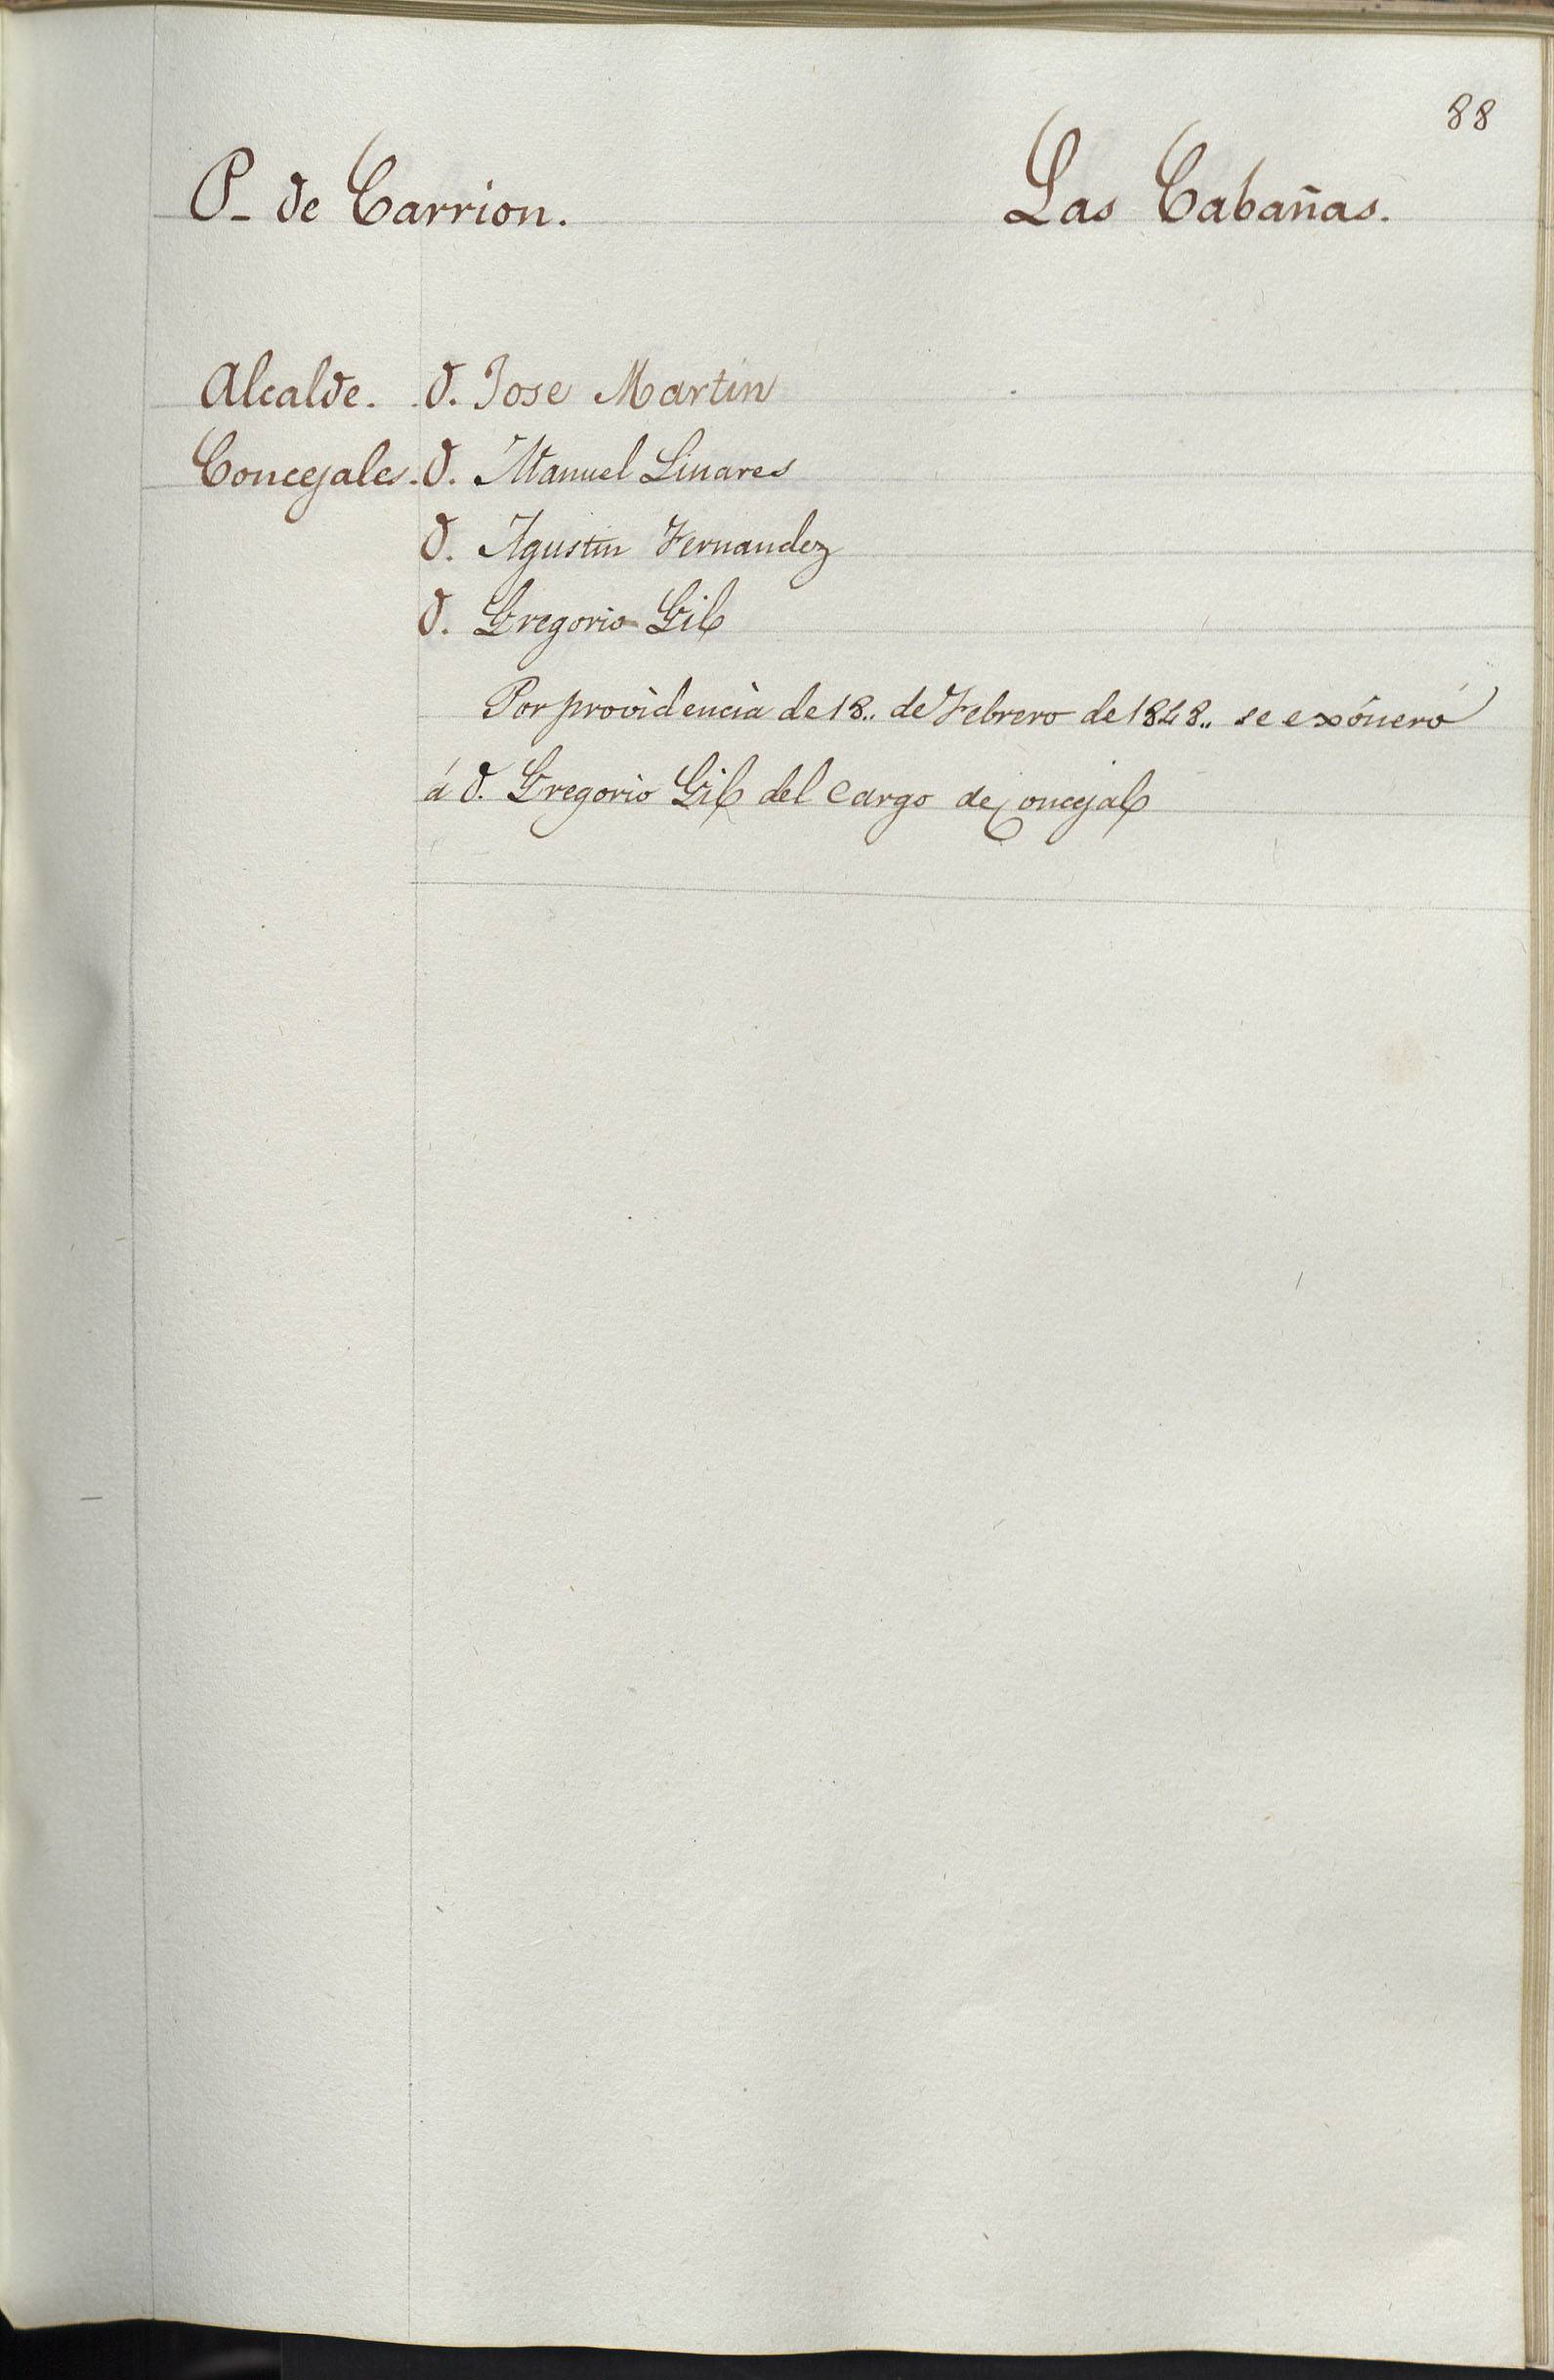 88
P- de Carrion. Las Cabañas.
Alcalde. D. Jose Martin
Concejales. D. Manuel Linares
D. Agustin Fernandez
D. Gregorio Gil
Por providencia de 18.. de Febrero de 1848.. se exóneró
á D. Gregorio Gil del cargo de Concejal